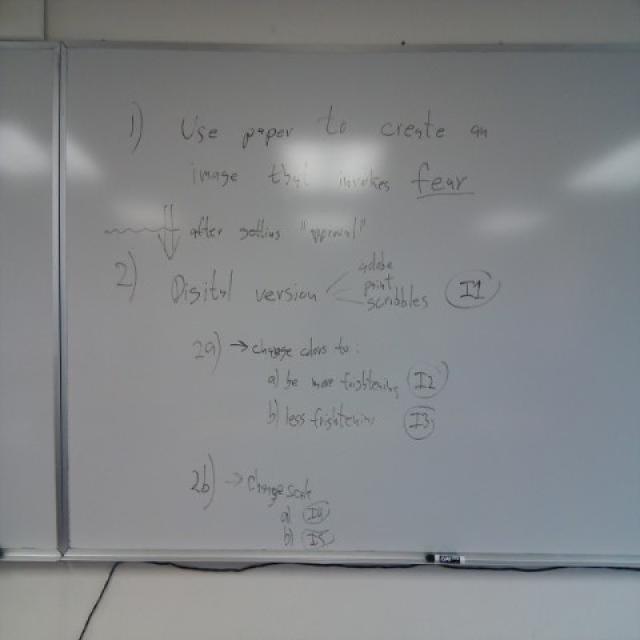 1) Use paper to create an
image that invokes fear
after getting "approval"
2) Digital version
adobe
paint
scribbles I1
2a) → change colors to:
a) be more frightening I2
b) less frightening I3
2b) → Change scale
a) I4
b) I5